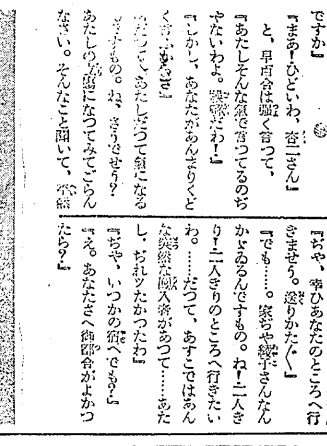 ですか』
『まあ！ひどいわ、杏二さん』
と、早百合は強く言つて、
『あたしそんな氣で言つてるのぢ
やないわよ。
だわ！』
『しかし、あなたがあんまりくど
く
『だつて、あたしだつて氣になる
ますもの。ね、さうでせう？
あたしの立場になつてみてごらん
なさい。そんなこと聞いて、
『ぢや、幸ひあなたのところへ行
きませう。送りかた〴〵』
『でも……。家ぢや綾子さんなん
かゞゐるんですもの。ね！二人き
り！二人きりのところへ行きたい
わ。……だつて、あすこではあん
な突然な闖入者があつて……あた
し、ぢれツたかつたわ』
『ぢや、いつかの宿へでも？』
『え。あなたさへ御都合がよかつ
たら？』